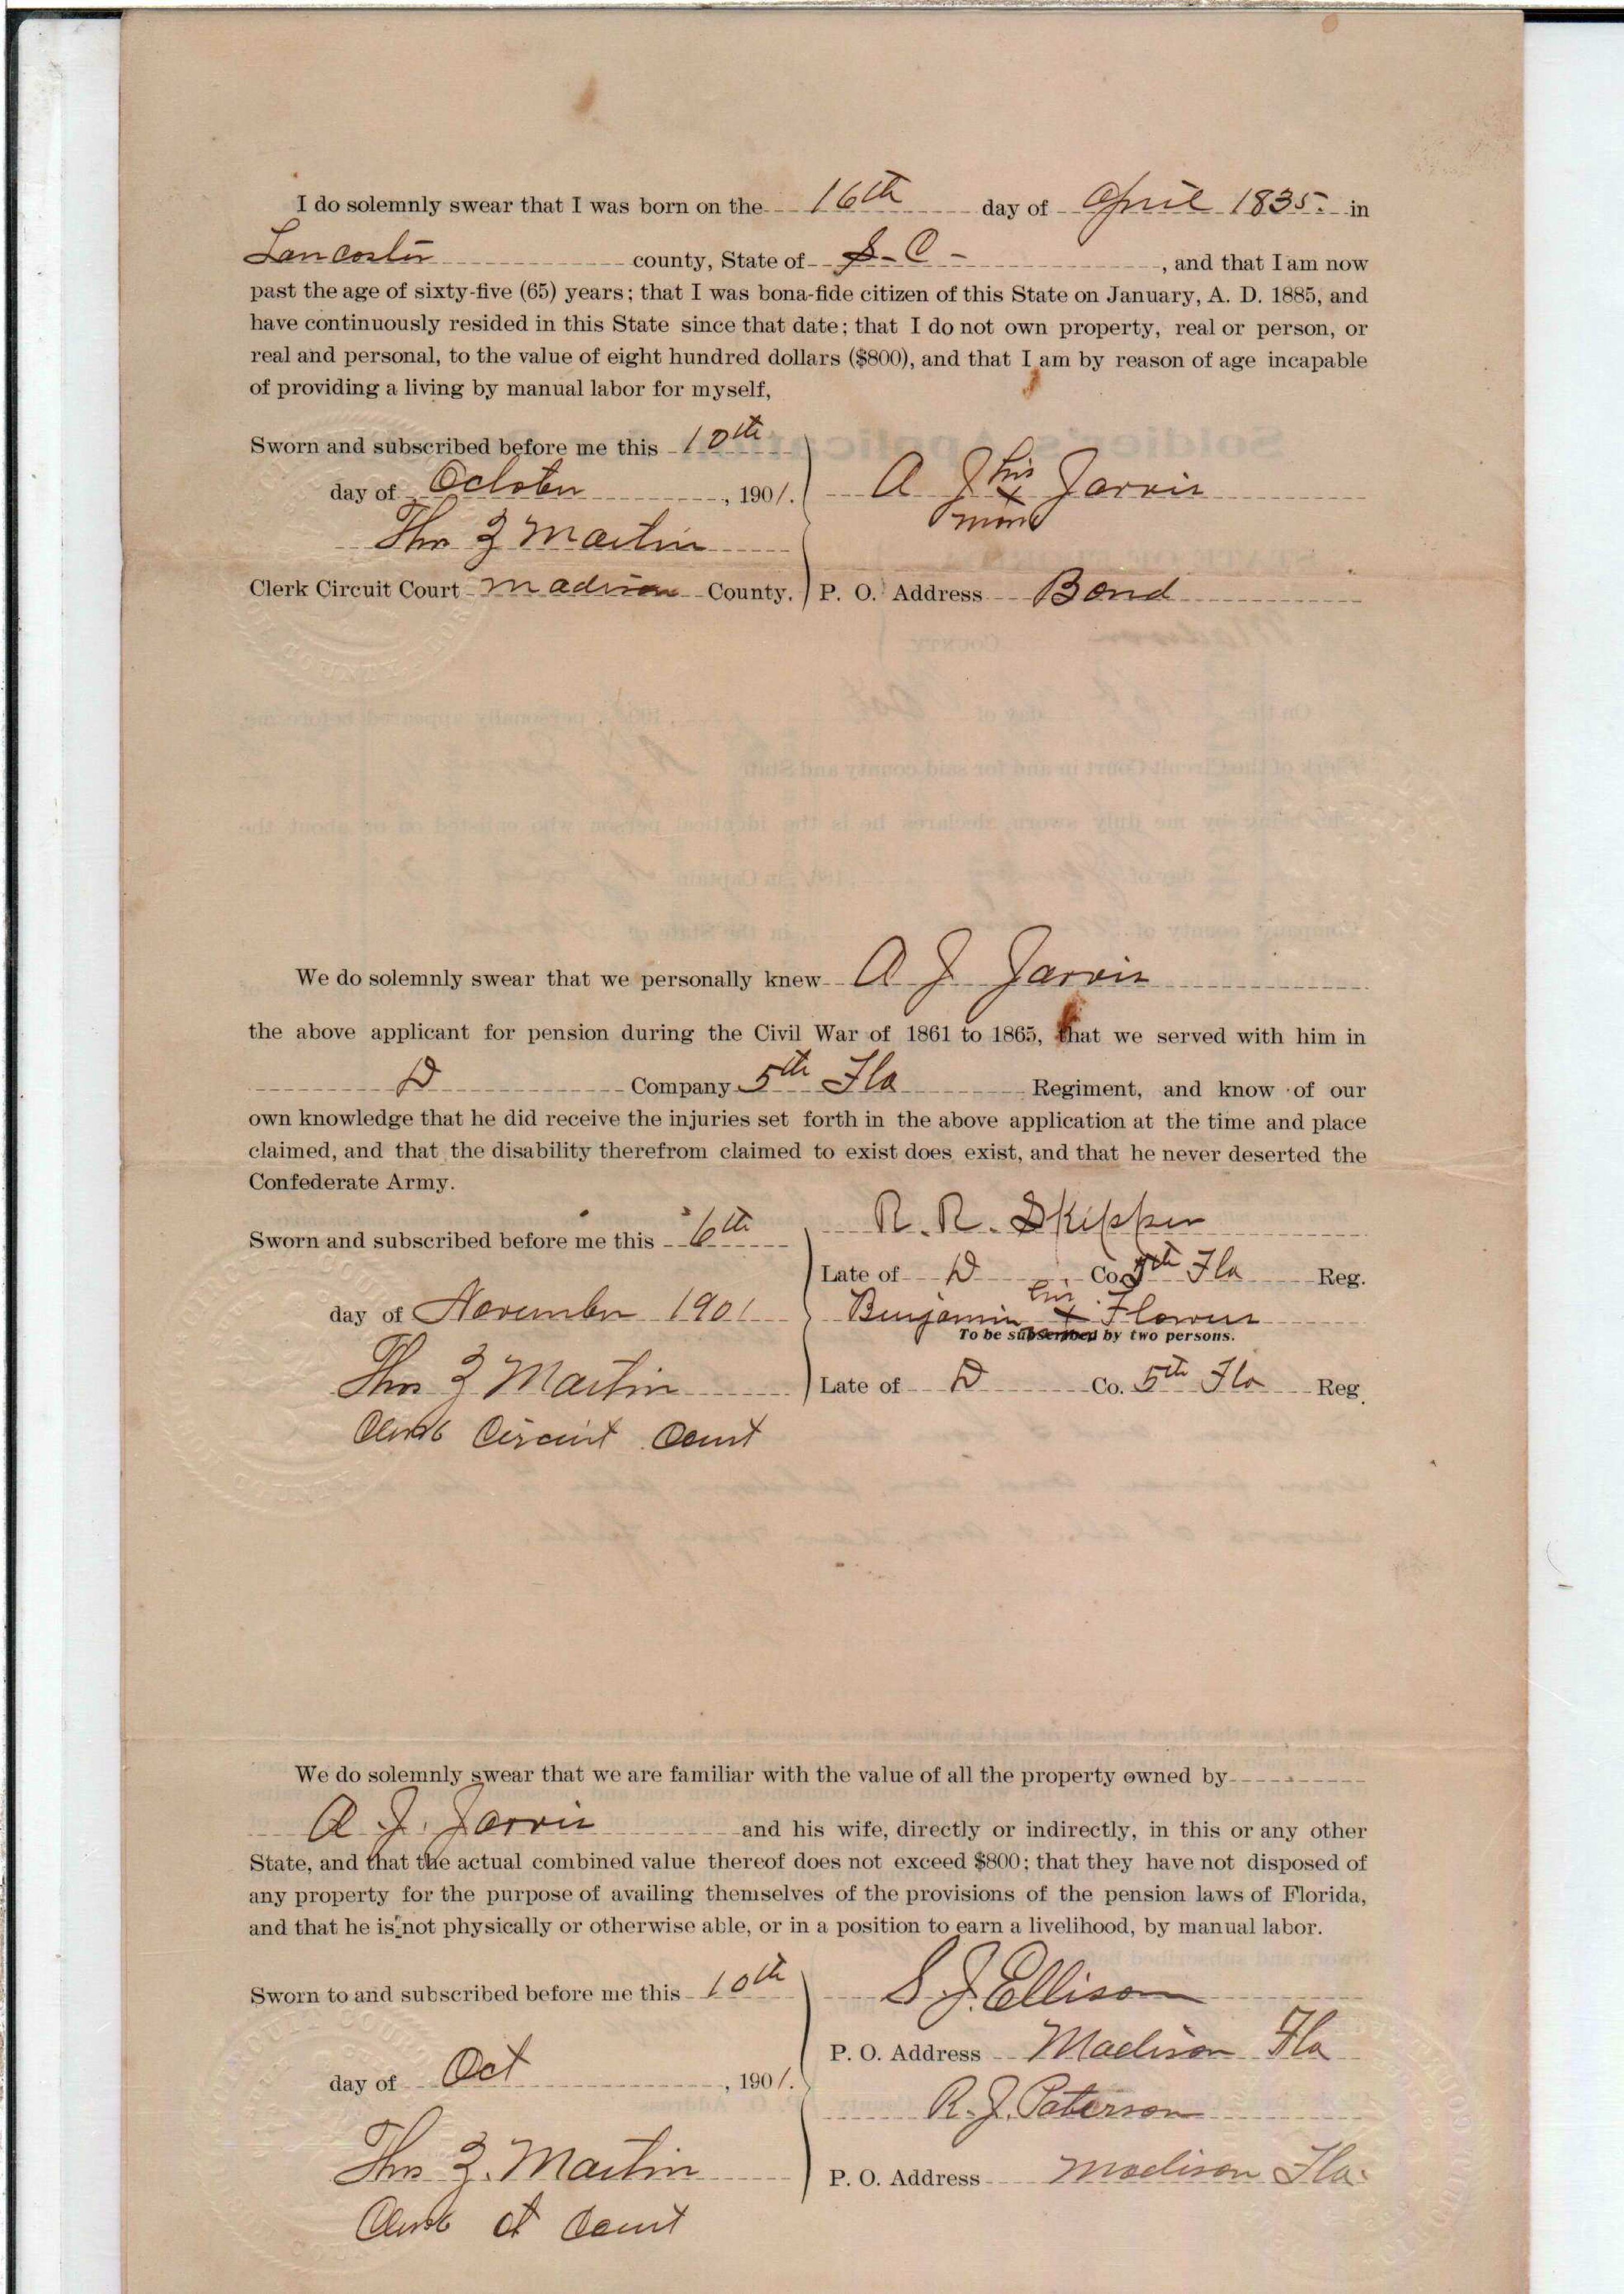 I do solemnly swear that I was born on the 16th day of April 1835. in
Lancaster county, State of S-C- , and that I am now
past the age of sixty-five (65) years; that I was bona-fide citizen of this State on January, A. D. 1885, and
have continuously resided in this State since that date; that I do not own property, real or person, or
real and personal, to the value of eight hundred dollars ($800), and that I am by reason of age incapable
of providing a living by manual labor for myself,
Sworn and subscribed before me this 10th
day of October , 1901.
A J his x mark Jarvis
Thos Z Martin
Clerk Circuit Court Madison County.
P. O. Address Bond
We do solemnly swear that we personally knew A J Jarvis
the above applicant for pension during the Civil War of 1861 to 1865, that we served with him in
D Company 5th Fla Regiment, and know of our
own knowledge that he did receive the injuries set forth in the above application at the time and place
claimed, and that the disability therefrom claimed to exist does exist, and that he never deserted the
Confederate Army.
Sworn and subscribed before me this 6th
R. R. Skipper
Late of D Co. 5th Fla Reg.
day of November 1901
Benjamin his x mark Flowers
To be subscribed by two persons.
Thos Z Martin
Late of D Co. 5th Fla Reg.
Clerk Circuit Court
We do solemnly swear that we are familiar with the value of all the property owned by
A. J. Jarvis and his wife, directly or indirectly, in this or any other
State, and that the actual combined value thereof does not exceed $800; that they have not disposed of
any property for the purpose of availing themselves of the provisions of the pension laws of Florida,
and that he is not physically or otherwise able, or in a position to earn a livelihood, by manual labor.
Sworn to and subscribed before me this 10th
S. J. Ellison
P. O. Address Madison Fla
day of Oct , 1901.
R. J. Paterson
Thos Z. Martin
P. O. Address Madison Fla.
Clerk Ct Court